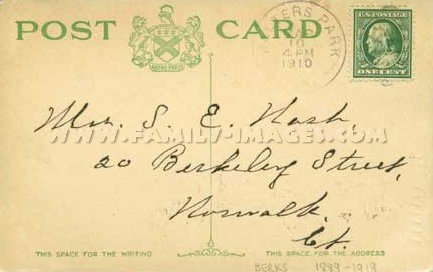 POST CARD
ERS PARK
4 PM
1910
U.S. POSTAGE
ONE CENT
Mrs. S. E. Nash.
20 Berkeley Street,
Norwalk,
Ct.
WWW.FAMILY-IMAGES.COM
THIS SPACE FOR THE WRITING
THIS SPACE FOR THE ADDRESS
BERKS 1889-1919